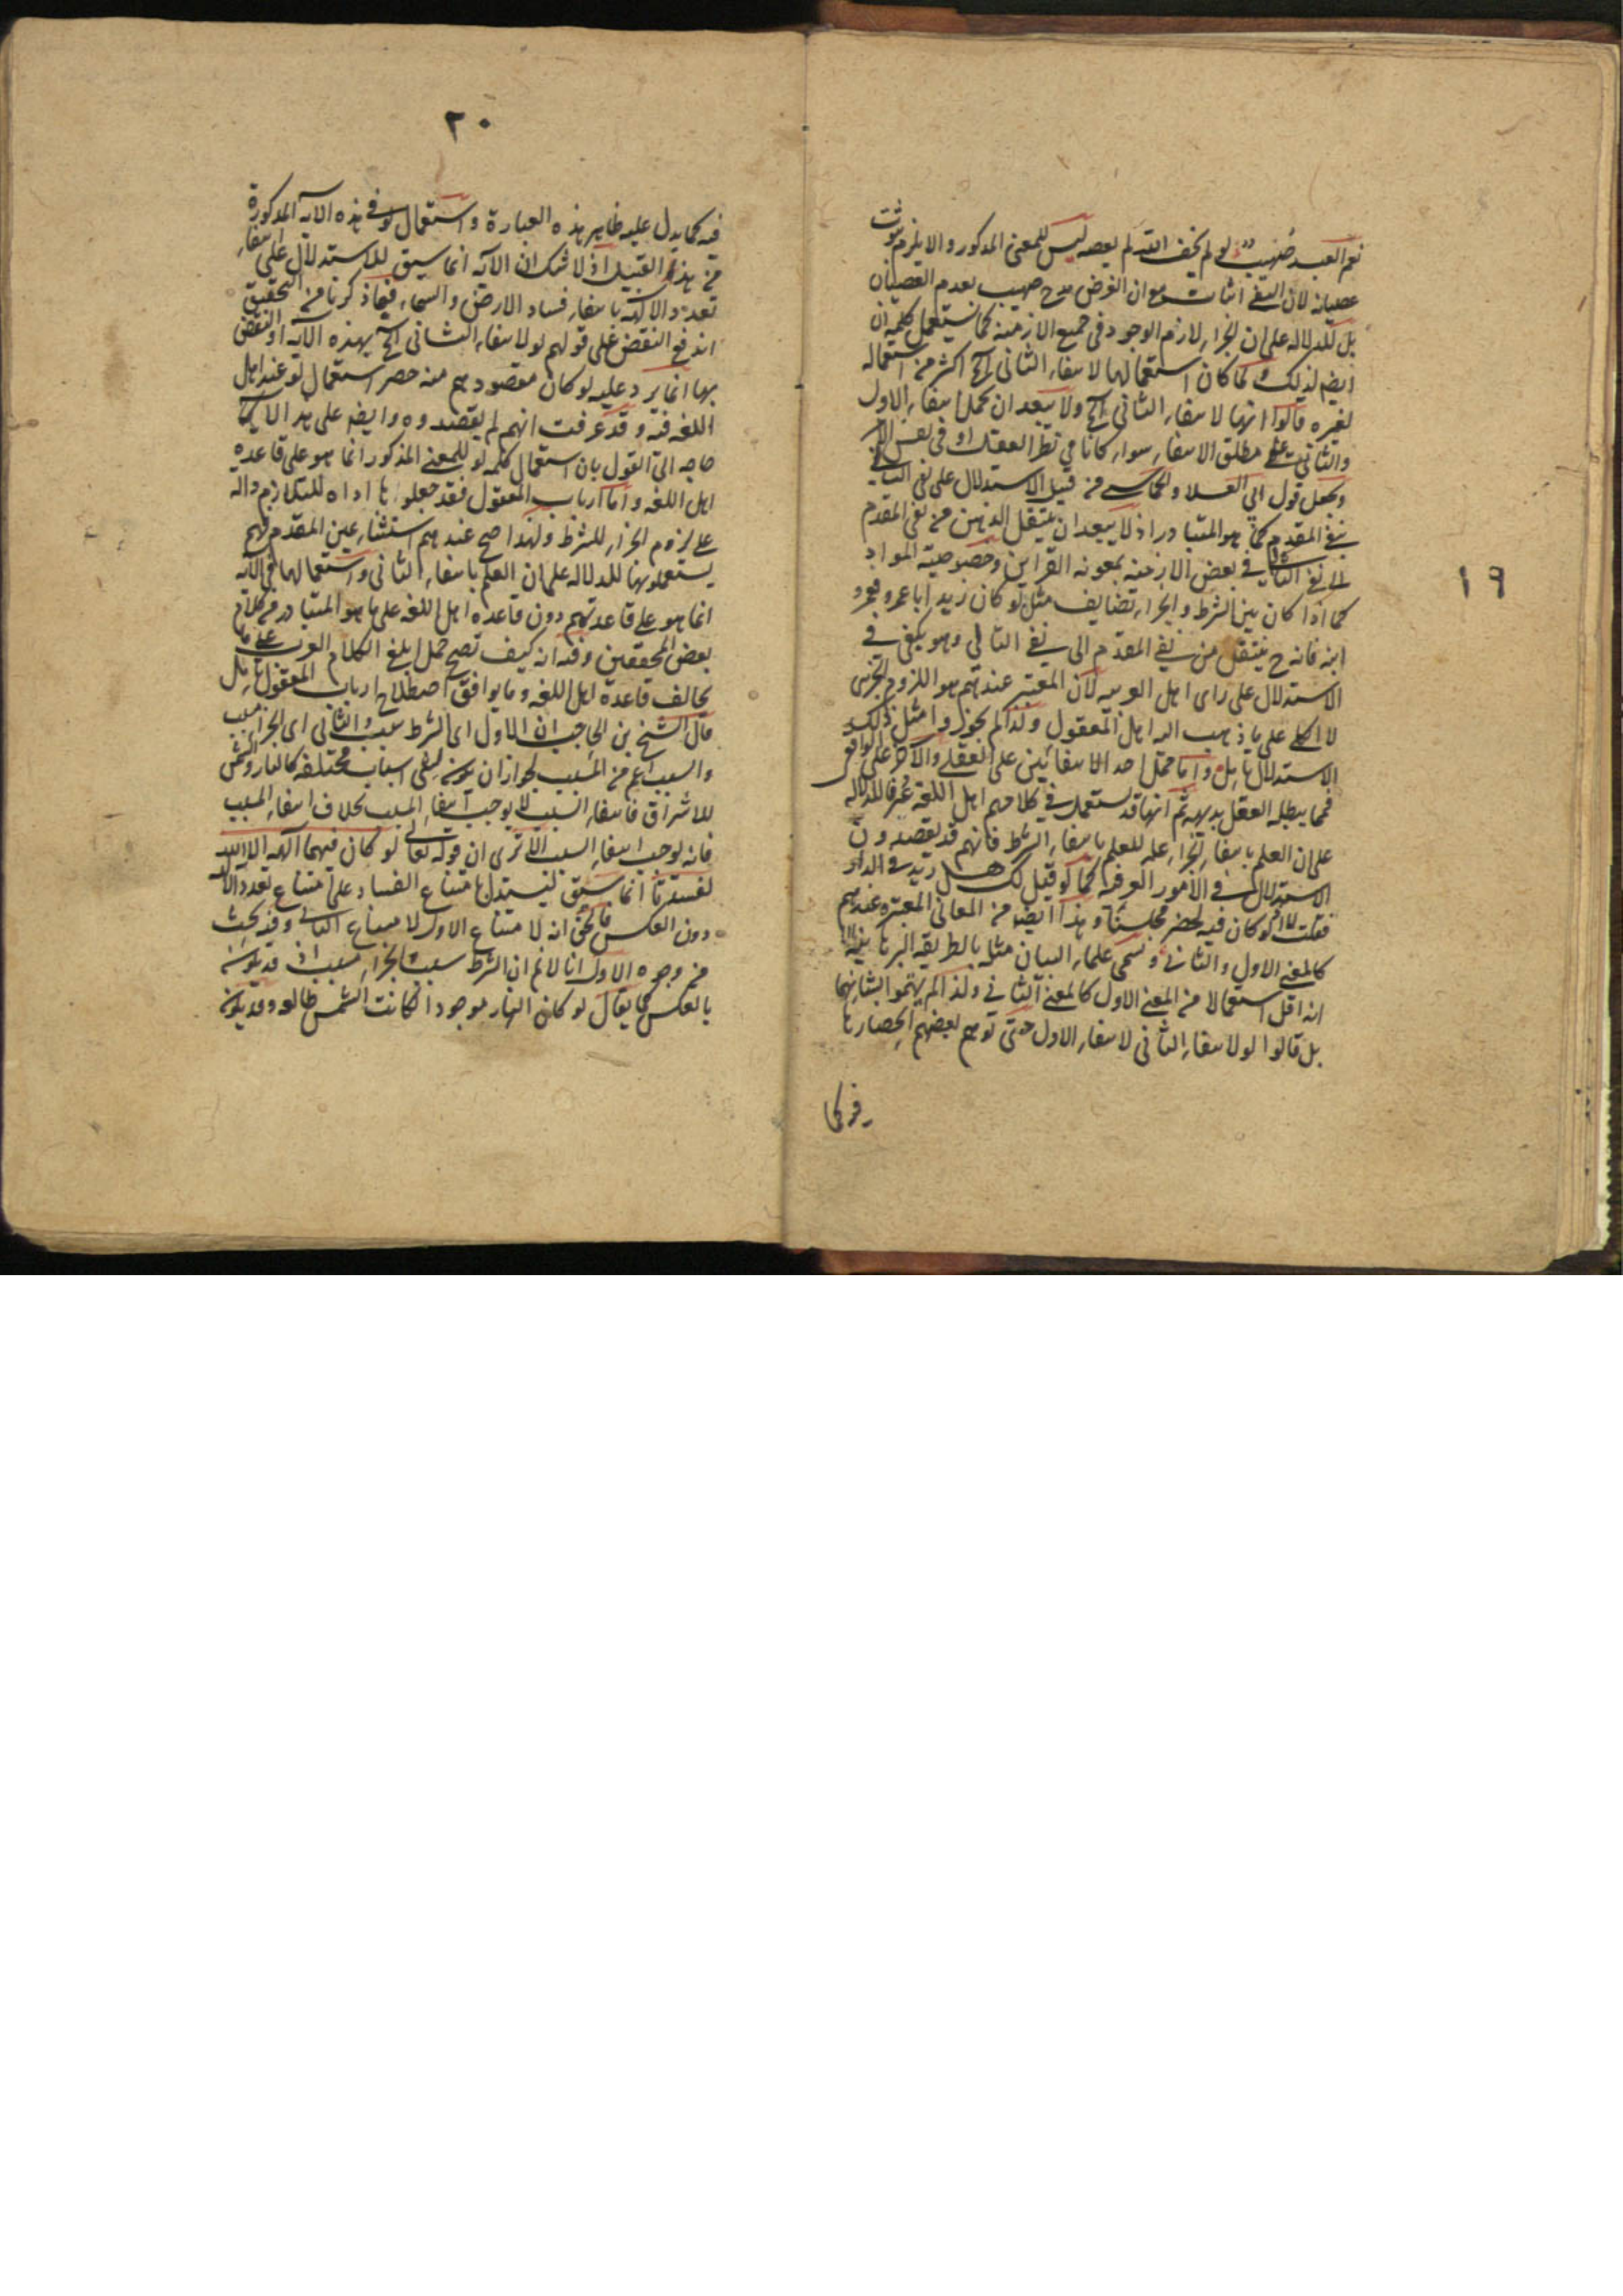 ١٩
نعم العبد صهيب لو لم يخف الله لم يعصه ليس للمعنى المذكور والا يلزم ثبوت
عصيانه لان النفي اثبات مع ان الغرض مدح صهيب بعدم العصيان
بل للدلالة على ان الجزاء لازم الوجود في جميع الازمنة كما يستعمل كلمة ان
ايضا لذلك ولما كان استعمالها لانتفاء الثاني الخ اكثر من استعماله
لغيره قالوا انها لانتفاء الثاني الخ ولا يبعد ان يحمل انتفاء الاول
والثاني على مطلق الانتفاء سواء كانا في نظر العقل او في نفس الامر
ويجعل قول ابي العلا والحماسي من قبيل الاستدلال على نفي التالي
بنفي المقدم كما هو المتبادر اذ لا يبعد ان ينتقل الذهن من نفي المقدم
الى نفي التالي في بعض الازمنة بمعونة القراين وخصوصية المواد
كما اذا كان بين الشرط والجزاء تضايف مثل لو كان زيد ابا عمرو فعمرو
ابنه فانه ح ينتقل من نفي المقدم الى نفي التالي وهو يكفي في
الاستدلال على راى اهل العربية لان المعتبر عندهم هو اللزوم الجزئى
لا الكلي على ما ذهب اليه اهل المعقول ولذا لم يجوزوا مثل ذلك
الاستدلال تأمل واما حمل احد الانتفائين على العقلي والآخر على الواقعى
فمما يبطله العقل بديهة ثم انها قد يستعمل في كلامهم اهل اللغة عرفا للدلالة
على ان العلم بانتفاء الجزاء علة للعلم بانتفاء الشرط فانهم قد يقصدون
الاستدلال في الامور العرفية كما لو قيل لك هل زيد في الدار
فقلت لا لو كان فيه لحضر مجلسنا وهذا ايضا من المعاني المعتبرة عندهم
كالمعنى الاول والثاني ويسمى علماء البيان مثله بالطريقة البرهانية الا
انه اقل استعمالا من المعنى الاول كالمعنى الثاني ولذا لم يهتموا بشانهما
بل قالوا لو لانتفاء الثاني لانتفاء الاول حتى توهم بعضهم انحصارها
فيه كما
٢٠
فيه كما يدل عليه ظاهر هذه العبارة واستعمال لو في هذه الآية المذكورة
من هذا القبيل اذ لا شك ان الآية انما سيق للاستدلال على انتفاء
تعدد الآلهة بانتفاء فساد الارض والسماء فيما ذكرنا من التحقيق
اندفع النقض على قولهم لو لانتفاء الثاني الخ بهذه الآية او النقض
بها انما يرد عليه لو كان مقصودهم منه حصر استعمال لو عند اهل
اللغة فيه وقد عرفت انهم لم يقصدوه وايضا على هذا لا
حاجة الى القول بان استعمال كلمة لو للمعنى المذكور انما هو على قاعدة
اهل اللغة واما ارباب المعقول فقد جعلوها اداة للتلازم دالة
على لزوم الجزاء للشرط ولهذا صح عندهم استثناء عين المقدم فهم
يستعملونها للدلالة على ان العلم بانتفاء الثاني واستعمالها في الآية
انما هو على قاعدتهم دون قاعدة اهل اللغة على ما هو المتبادر من كلام
بعض المحققين وفيه انه كيف تصح حمل ابلغ الكلام العربي على ما
يخالف قاعدة اهل اللغة وما يوافق اصطلاح ارباب المعقول تأمل
قال الشيخ بن الحاجب ان الاول اى الشرط سبب والثاني اى الجزاء مسبب
والسبب اعم من المسبب لجواز ان يكون لشئ اسباب مختلفة كالنار والشمس
للاشراق فانتفاء السبب لا يوجب انتفاء المسبب بخلاف انتفاء المسبب
فانه يوجب انتفاء السبب الا ترى ان قوله تعالى لو كان فيهما آلهة الا الله
لفسدتا انما سيق ليستدل بامتناع الفساد على امتناع تعدد الآلهة
دون العكس فالحق انه لامتناع الاول لامتناع الثاني وفيه بحث
من وجوه الاول انا لا نم ان الشرط سبب والجزاء مسبب اذ قد يكون
بالعكس كما يقال لو كان النهار موجودا لكانت الشمس طالعة وقد يكون